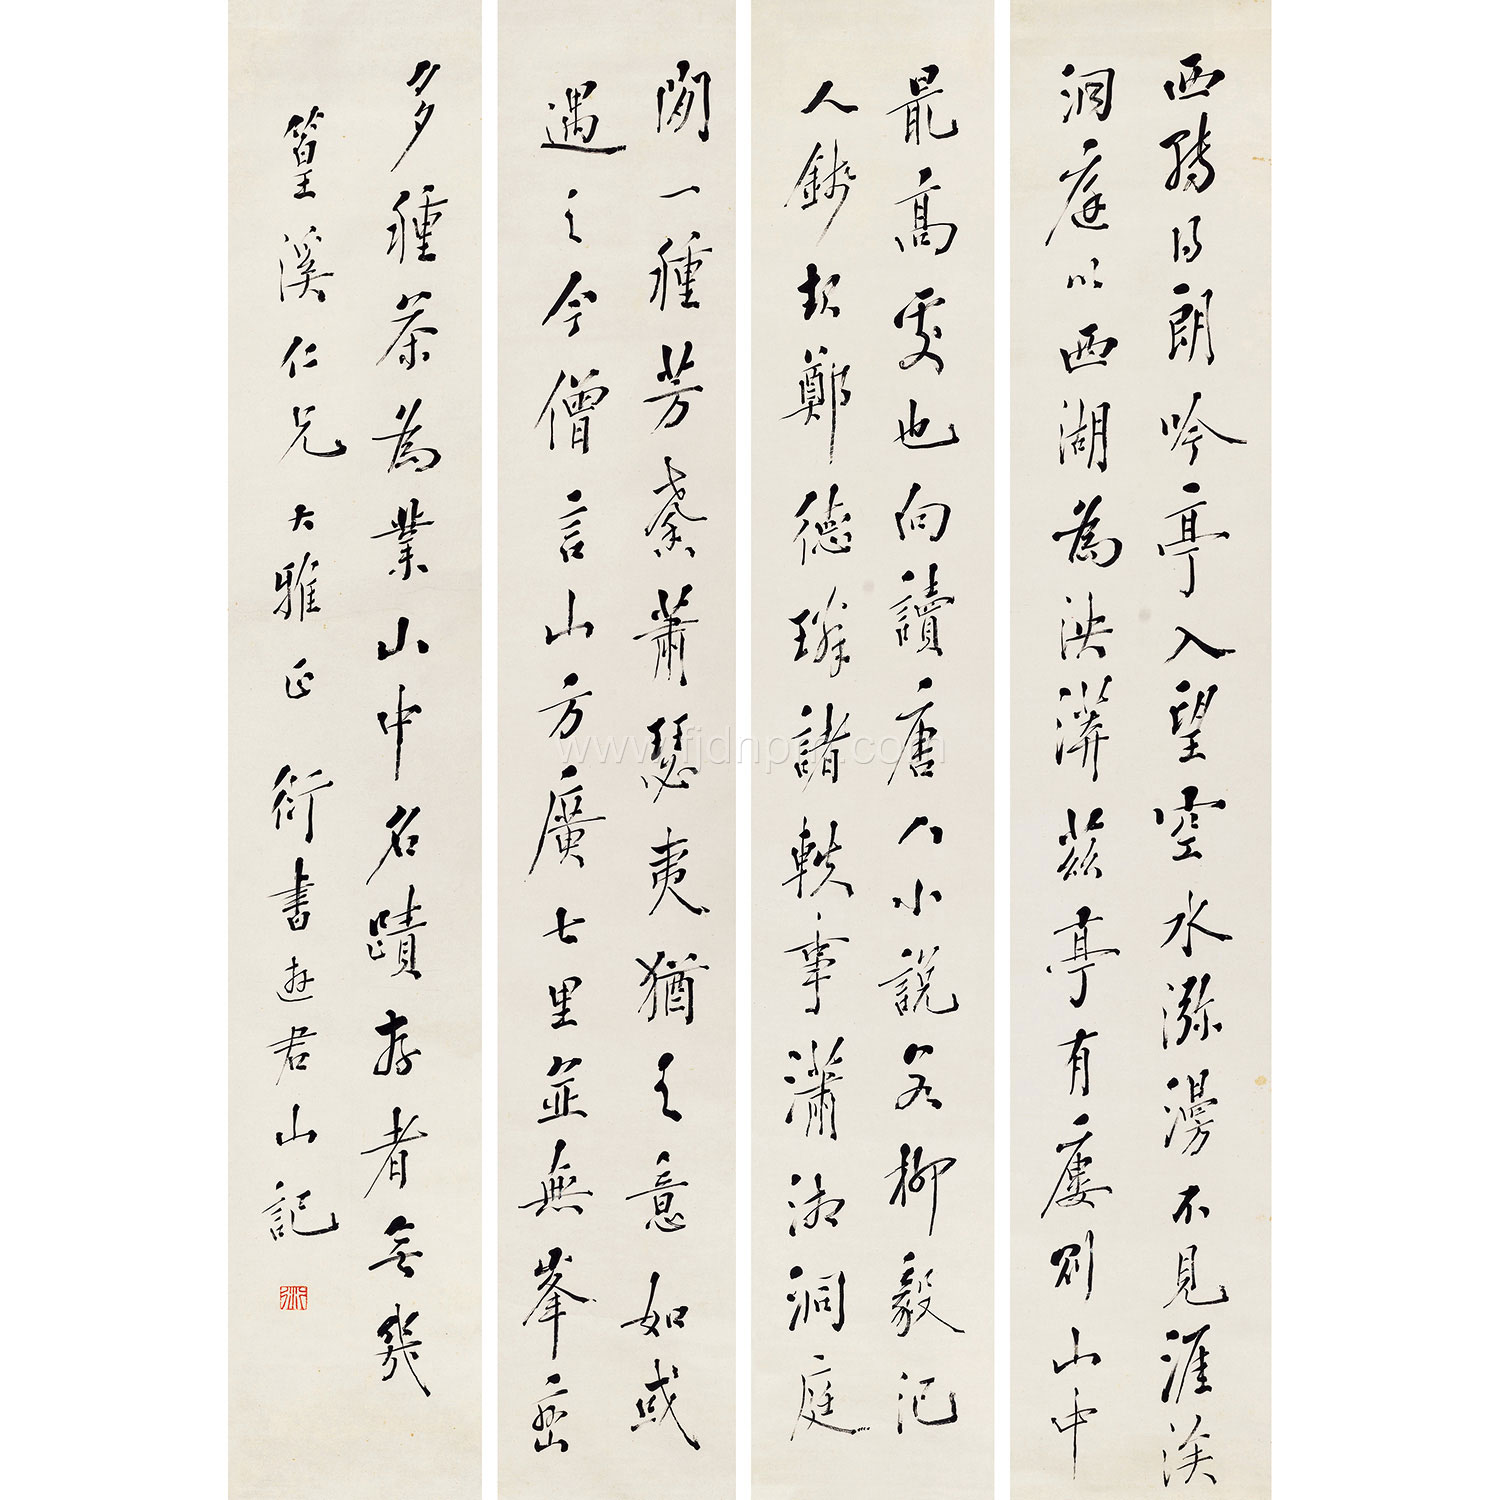 西轉得朗吟亭入望空水瀰漫不見涯涘
洞庭以西湖為泱漭茲亭有廔則山中
最高處也向讀唐人小說若柳毅氾
人錢起鄭德璘諸軼事瀟湘洞庭
間一種芳馨蕭瑟夷猶之意如或
遇之今僧言山方廣七里並無峯巒
多種茶為業山中名蹟存者無幾
篁溪仁兄大雅正 衍書遊君山記